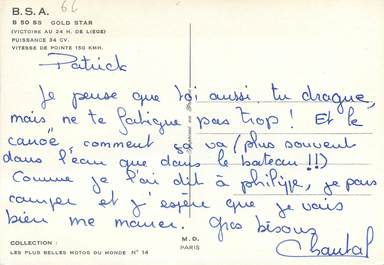 B.S.A. 62
B 50 SS GOLD STAR
(VICTOIRE AU 24 H. DE LIÈGE)
PUISSANCE 34 CV.
VITESSE DE POINTE 150 KMH.
Patrick
Je pense que toi aussi tu drague,
mais ne te fatigue pas trop ! Et le
canoë, comment sa va (plus souvent
dans l'eau que dans le bateau !!)
Comme je t'ai dit à philippe, je pars
camper et j'espère que je vais
bien me marrer. Gros bisous
Chantal
COLLECTION :
LES PLUS BELLES MOTOS DU MONDE N° 14
M.D.
PARIS